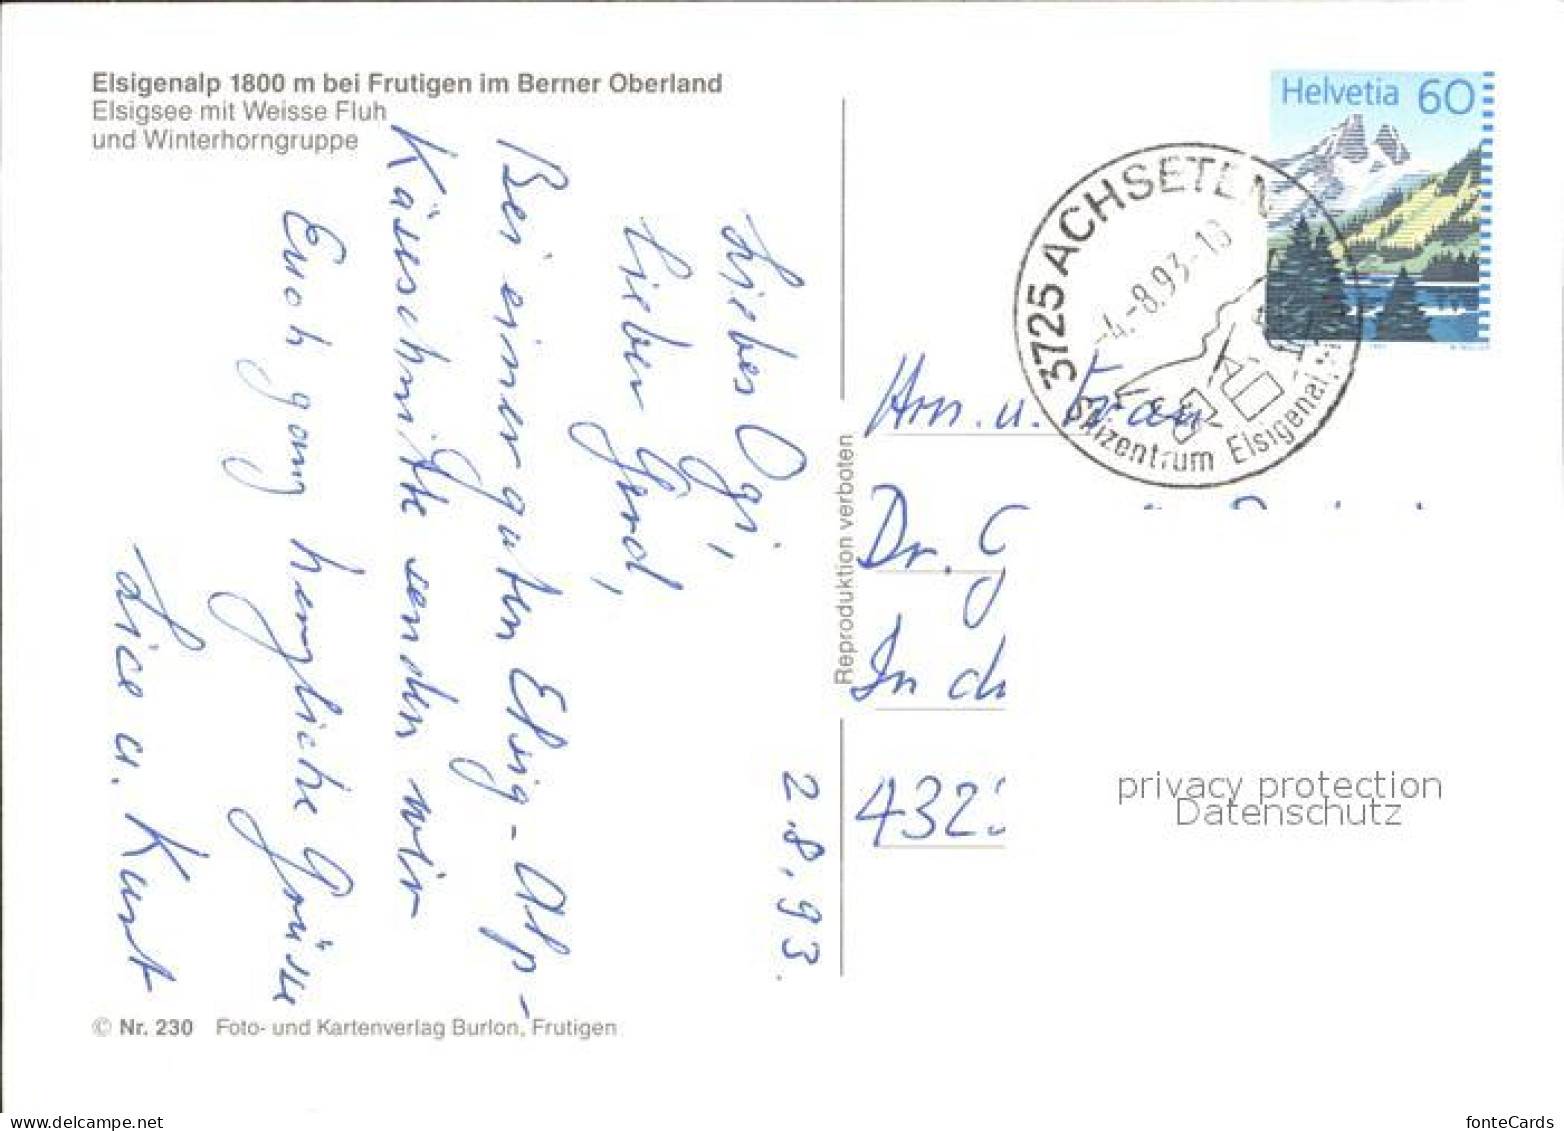 Elsigenalp 1800 m bei Frutigen im Berner Oberland
Elsigsee mit Weisse Fluh
und Winterhorngruppe
2.8.93.
Liebes Ogi,
lieber Gerd,
Bei einer guten Elsig-Alp-
Käseschnitte senden wir
Euch ganz herzliche Grüsse
Lice u. Kurt
© Nr. 230 Foto- und Kartenverlag Burlon, Frutigen
Reproduktion verboten
Helvetia 60
3725 ACHSETEN
-4.-8.93-18
Skizentrum Elsigenalp
Hrn. u. Frau
Dr. G
In d
432
privacy protection
Datenschutz
delcampe.net
fonteCards